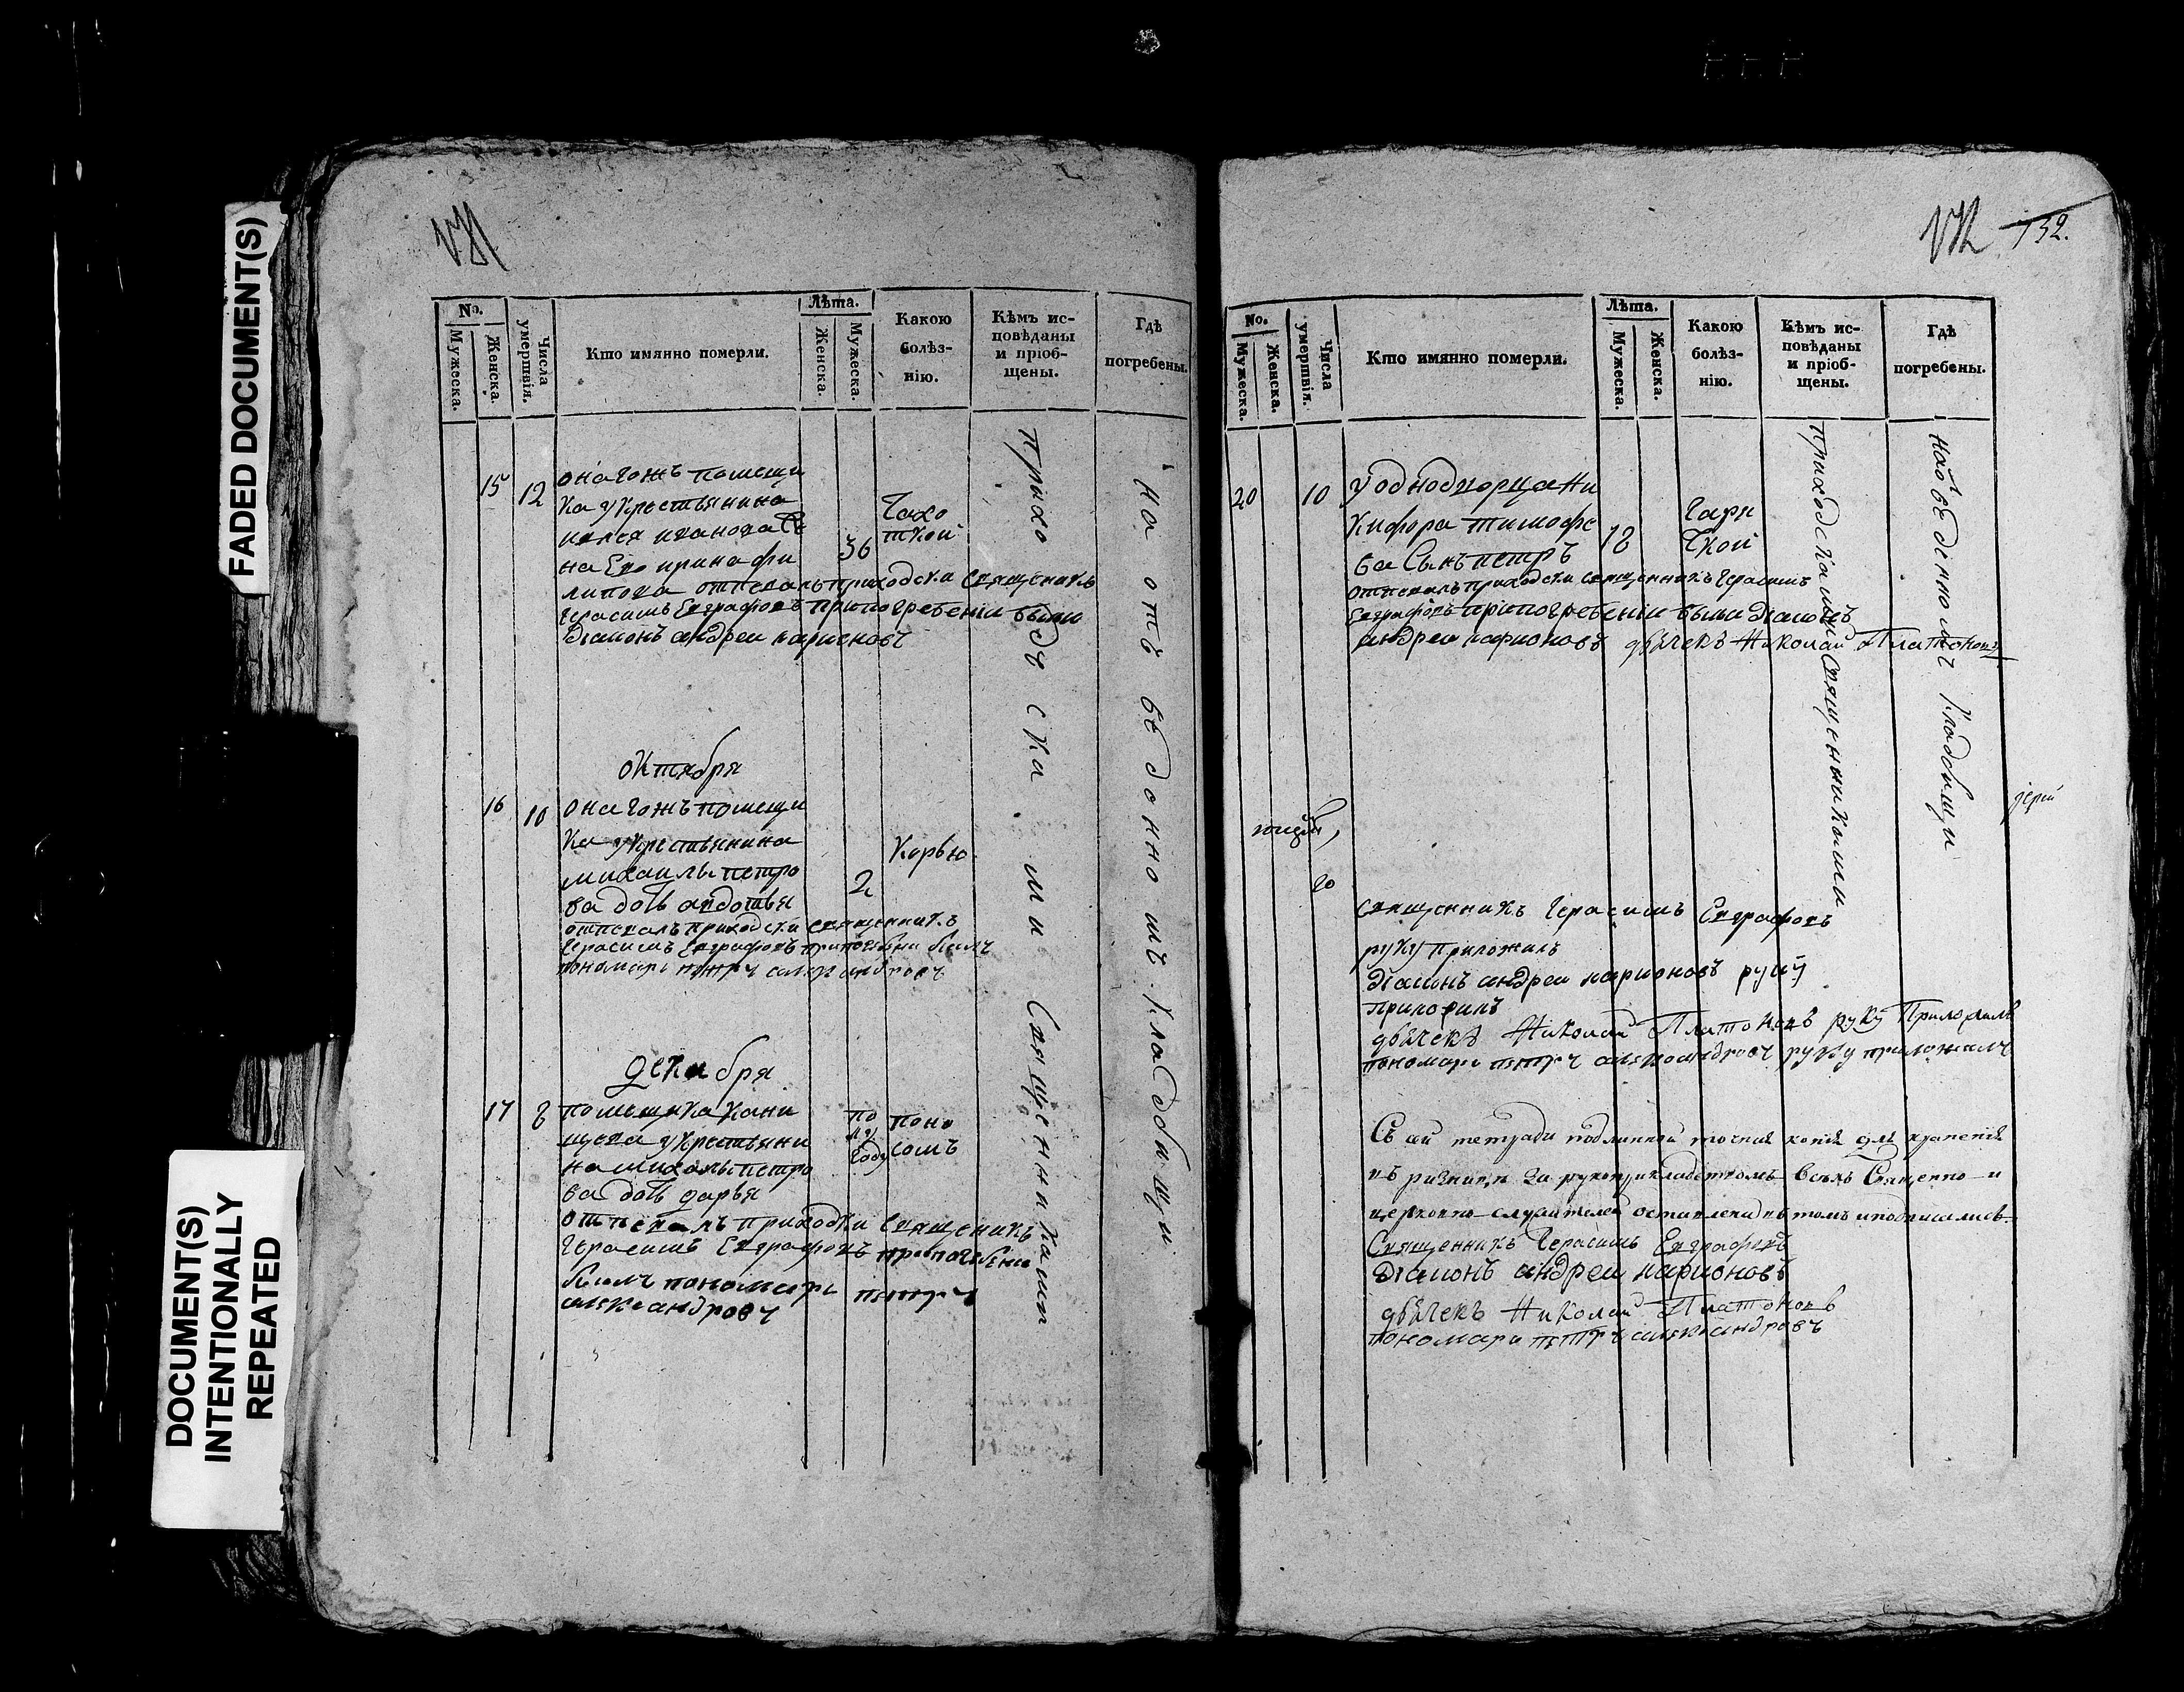 FADED DOCUMENT(S)
DOCUMENT(S)
INTENTIONALLY
REPEATED
No.
Мужеска.
Женска.
Числа
умертвія.
Кто имянно померли.
Лѣта.
Женска.
Мужеска.
Какою
болѣз-
нію.
Кѣмъ ис-
повѣданы
и пріоб-
щены.
Гдѣ
погребены.
15
12
онагожъ помещи
ка укрестьянина
ивана
на Его ирина фи
липова отпевалъ приходски священикъ
Герасимъ Евграфовъ при погребении были
Діаконъ андреи ларионовъ
36
Чахо
ткои
приходскими Священниками
на отведономъ кладбищи
октября
16
10
онагожъ помещи
ка укрестьянина
михаилы петро
ва дочь авдотья
отпевалъ приходски священникъ
Герасимъ Евграфовъ при погребени былъ
пономарь петръ александровъ
2
Корью
декабря
17
8
помещика кани
щева укрестьяни
на михаилы петро
ва дочь дарья
отпевалъ приходски священикъ
Герасимъ Евграфовъ при погребени
былъ пономарь петръ
александровъ
по
лу
Году
поно
сомъ
132.
No.
Мужеска.
Женска.
Числа
умертвія.
Кто имянно померли.
Лѣта.
Мужеска.
Женска.
Какою
болѣз-
нію.
Кѣмъ ис-
повѣданы
и пріоб-
щены.
Гдѣ
погребены.
20
10
у однодворца Ни
кифора тимофе
ва Сынъ петръ
отпевалъ приходски священникъ Герасимъ
Евграфовъ при погребении были Діаконъ
андреи ларионовъ дьячекъ Николай Платоновъ
18
Горя
чкой
приходскими священниками
на отведеномъ кладбищи
20
священникъ Герасимъ Евграфовъ
руку приложилъ
Діаконъ андреи ларионовъ руку
приложилъ
дьячекъ Николай Платоновъ руку Приложилъ
пономарь петръ александровъ руку приложилъ
Съ сей тетради подлинной точная копія для храненія
въ ризницѣ за рукоприкладствомъ всѣхъ Священно и
церковно служителей оставлена въ томъ и подписались.
Священникъ Герасимъ Евграфовъ
Діаконъ андреи ларионовъ
дьячекъ Николай Платоновъ
пономарь петръ александровъ